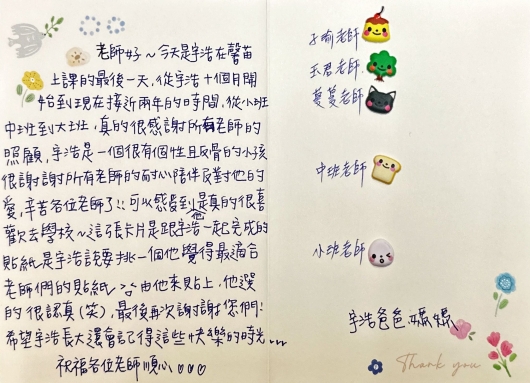 老師好～今天是宇浩在馨苗
上課的最後一天，從宇浩十個月開
始到現在接近兩年的時間，從小班
中班到大班，真的很感謝所有老師的
照顧，宇浩是一個很有個性且反骨的小孩
很謝謝所有老師的耐心陪伴及對他的
愛，辛苦各位老師了!!可以感受到他是真的很喜
歡去學校～這張卡片是跟宇浩一起完成的
貼紙是宇浩說要挑一個他覺得最適合
老師們的貼紙 由他來貼上，他選
的很認真(笑)，最後再次謝謝您們!
希望宇浩長大還會記得這些快樂的時光...
祝福各位老師順心♡♡♡
子瑜老師
玉君老師
蔓蔓老師
中班老師
小班老師
宇浩爸爸媽媽
Thank you